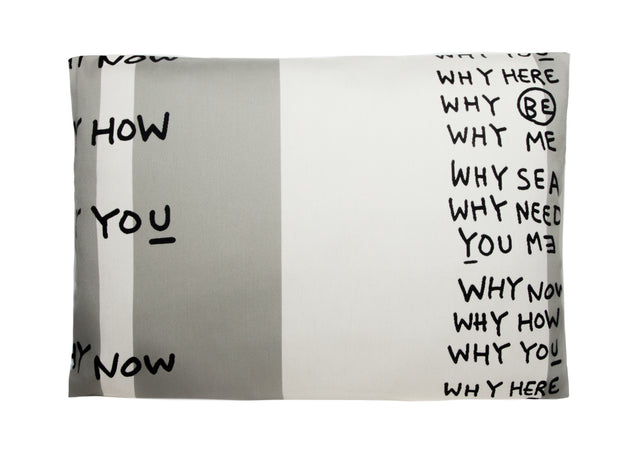 NOW
HOW
YOU
NOW
WHY YOU
WHY HERE
WHY BE
WHY ME
WHY SEA
WHY NEED
YOU ME
WHY NOW
WHY HOW
WHY YOU
WHY HERE